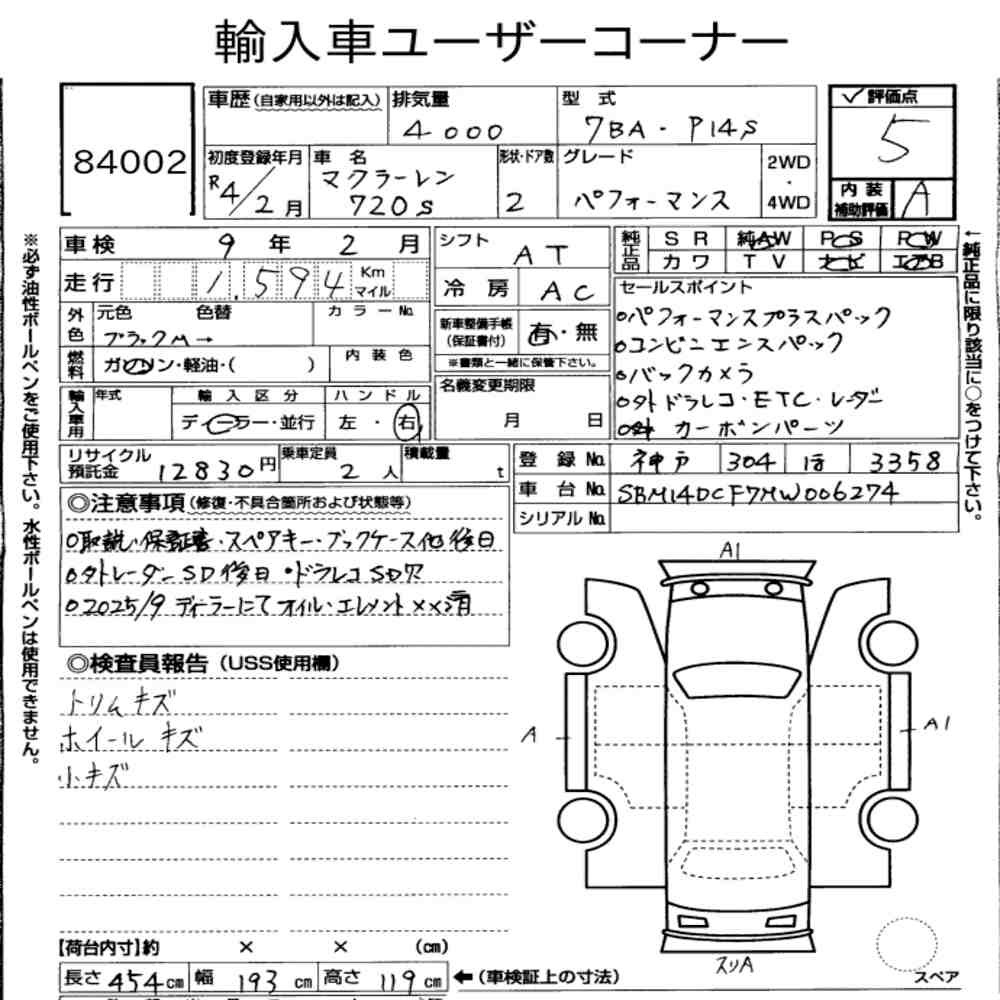 輸入車ユーザーコーナー
84002
車歴(自家用以外は記入) 排気量 4000 型式 7BA・P14S
初度登録年月 R4/2月 車名 マクラーレン 720S 形状・ドア数 2 グレード パフォーマンス 2WD・4WD
✓評価点 5
内装補助評価 A
※必ず油性ボールペンをご使用下さい。水性ボールペンは使用できません。
車検 9年2月
走行 1,594 Km マイル
外色 元色 ブラックM→ 色替 カラーNo.
燃料 ガソリン・軽油・( ) 内装色
輸入車用 年式 輸入区分 ディーラー・並行 ハンドル 左・右
シフト AT
冷房 AC
新車整備手帳(保証書付) 有・無
※書類と一緒に保管下さい。
名義変更期限 月 日
純正品 SR 純AW PS PW
カワ TV ナビ エアB
セールスポイント
○パフォーマンスプラスパック
○コンビニエンスパック
○バックカメラ
○外ドラレコ・ETC・レーダー
○外 カーボンパーツ
←純正品に限り該当に○をつけて下さい。
リサイクル預託金 12830円 乗車定員 2人 積載量 t
登録No. 神戸 304 ほ 3358
車台No. SBM14DCF7MW006274
シリアルNo.
◎注意事項(修復・不具合箇所および状態等)
○取説・保証書・スペアキー・ブックケース他後日
○外レーダーSD後日・ドラレコSD欠
○2025/9 ディーラーにてオイル・エレメント××済
◎検査員報告(USS使用欄)
トリムキズ
ホイールキズ
小キズ
A1
A
A1
スリA
スペア
【荷台内寸】約 × × (cm)
長さ 454cm 幅 193cm 高さ 119cm ←(車検証上の寸法)